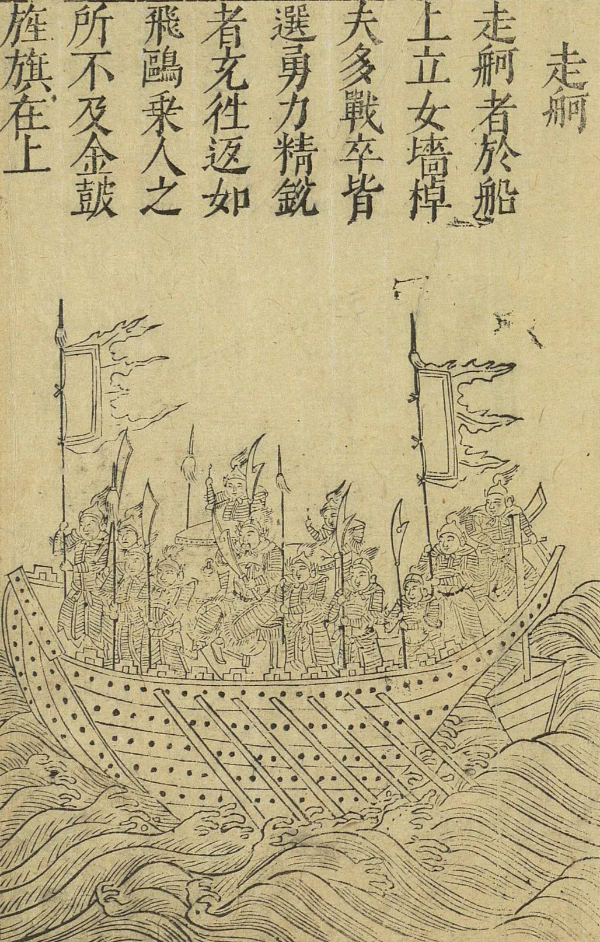 走舸
走舸者於船
上立女墻棹
夫多戰卒皆
選勇力精銳
者充往返如
飛鷗乘人之
所不及金鼓
旌旗在上